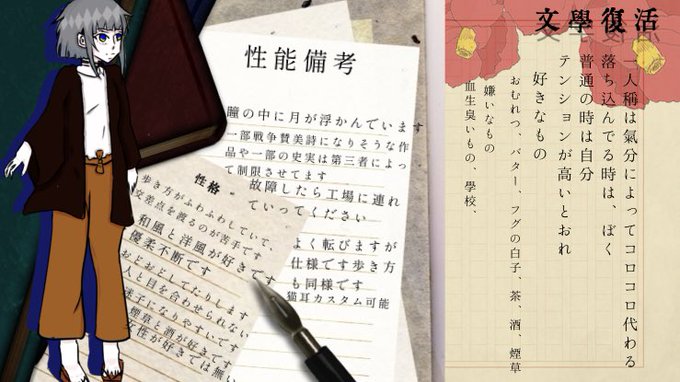 文學復活
一人稱は氣分によってコロコロ代わる
落ち込んでる時は、ぼく
普通の時は自分
テンションが高いとおれ
好きなもの
おむれつ、バター、フグの白子、茶、酒、煙草
嫌いなもの
血生臭いもの、學校、
性能備考
瞳の中に月が浮かんでいます
一部戦争賛美詩になりそうな作
品や一部の史実は第三者によっ
て制限させてます
故障したら工場に連れ
ていってください
よく転びますが
仕様です歩き方
も同様です
猫耳カスタム可能
性格
歩き方がふわふわしていて、
交差点を渡るのが苦手です
和風と洋風が好きです
優柔不断です
おどおどしてたりします
人と目を合わせられない
迷子になりやすいです
煙草と酒が好きです
女性が好きでは無い